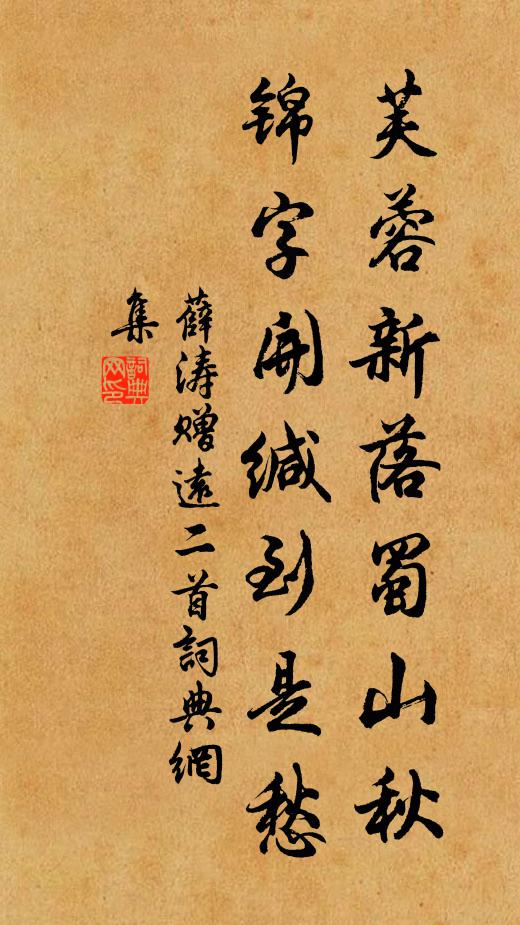 芙蓉新落蜀山秋
锦字开缄到是愁
薛涛赠遠二首詞典網
集
詞典网印